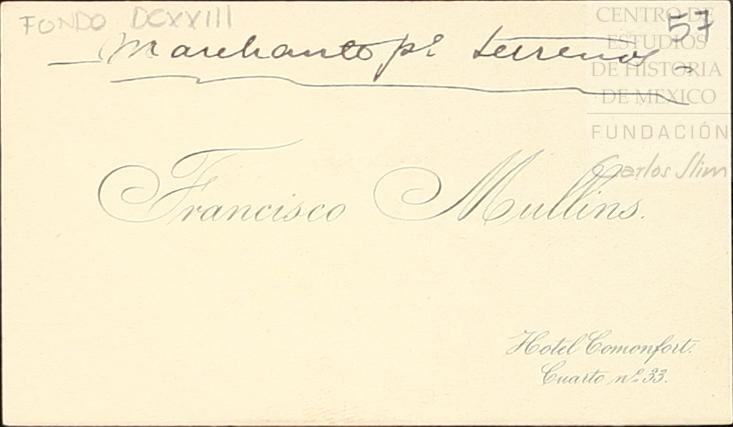 FONDO DCXXIII
57
Marchante pª terrenos
Francisco Mullins.
Hotel Comonfort.
Cuarto nº 33.
CENTRO DE
ESTUDIOS
DE HISTORIA
DE MEXICO
FUNDACIÓN
Carlos Slim